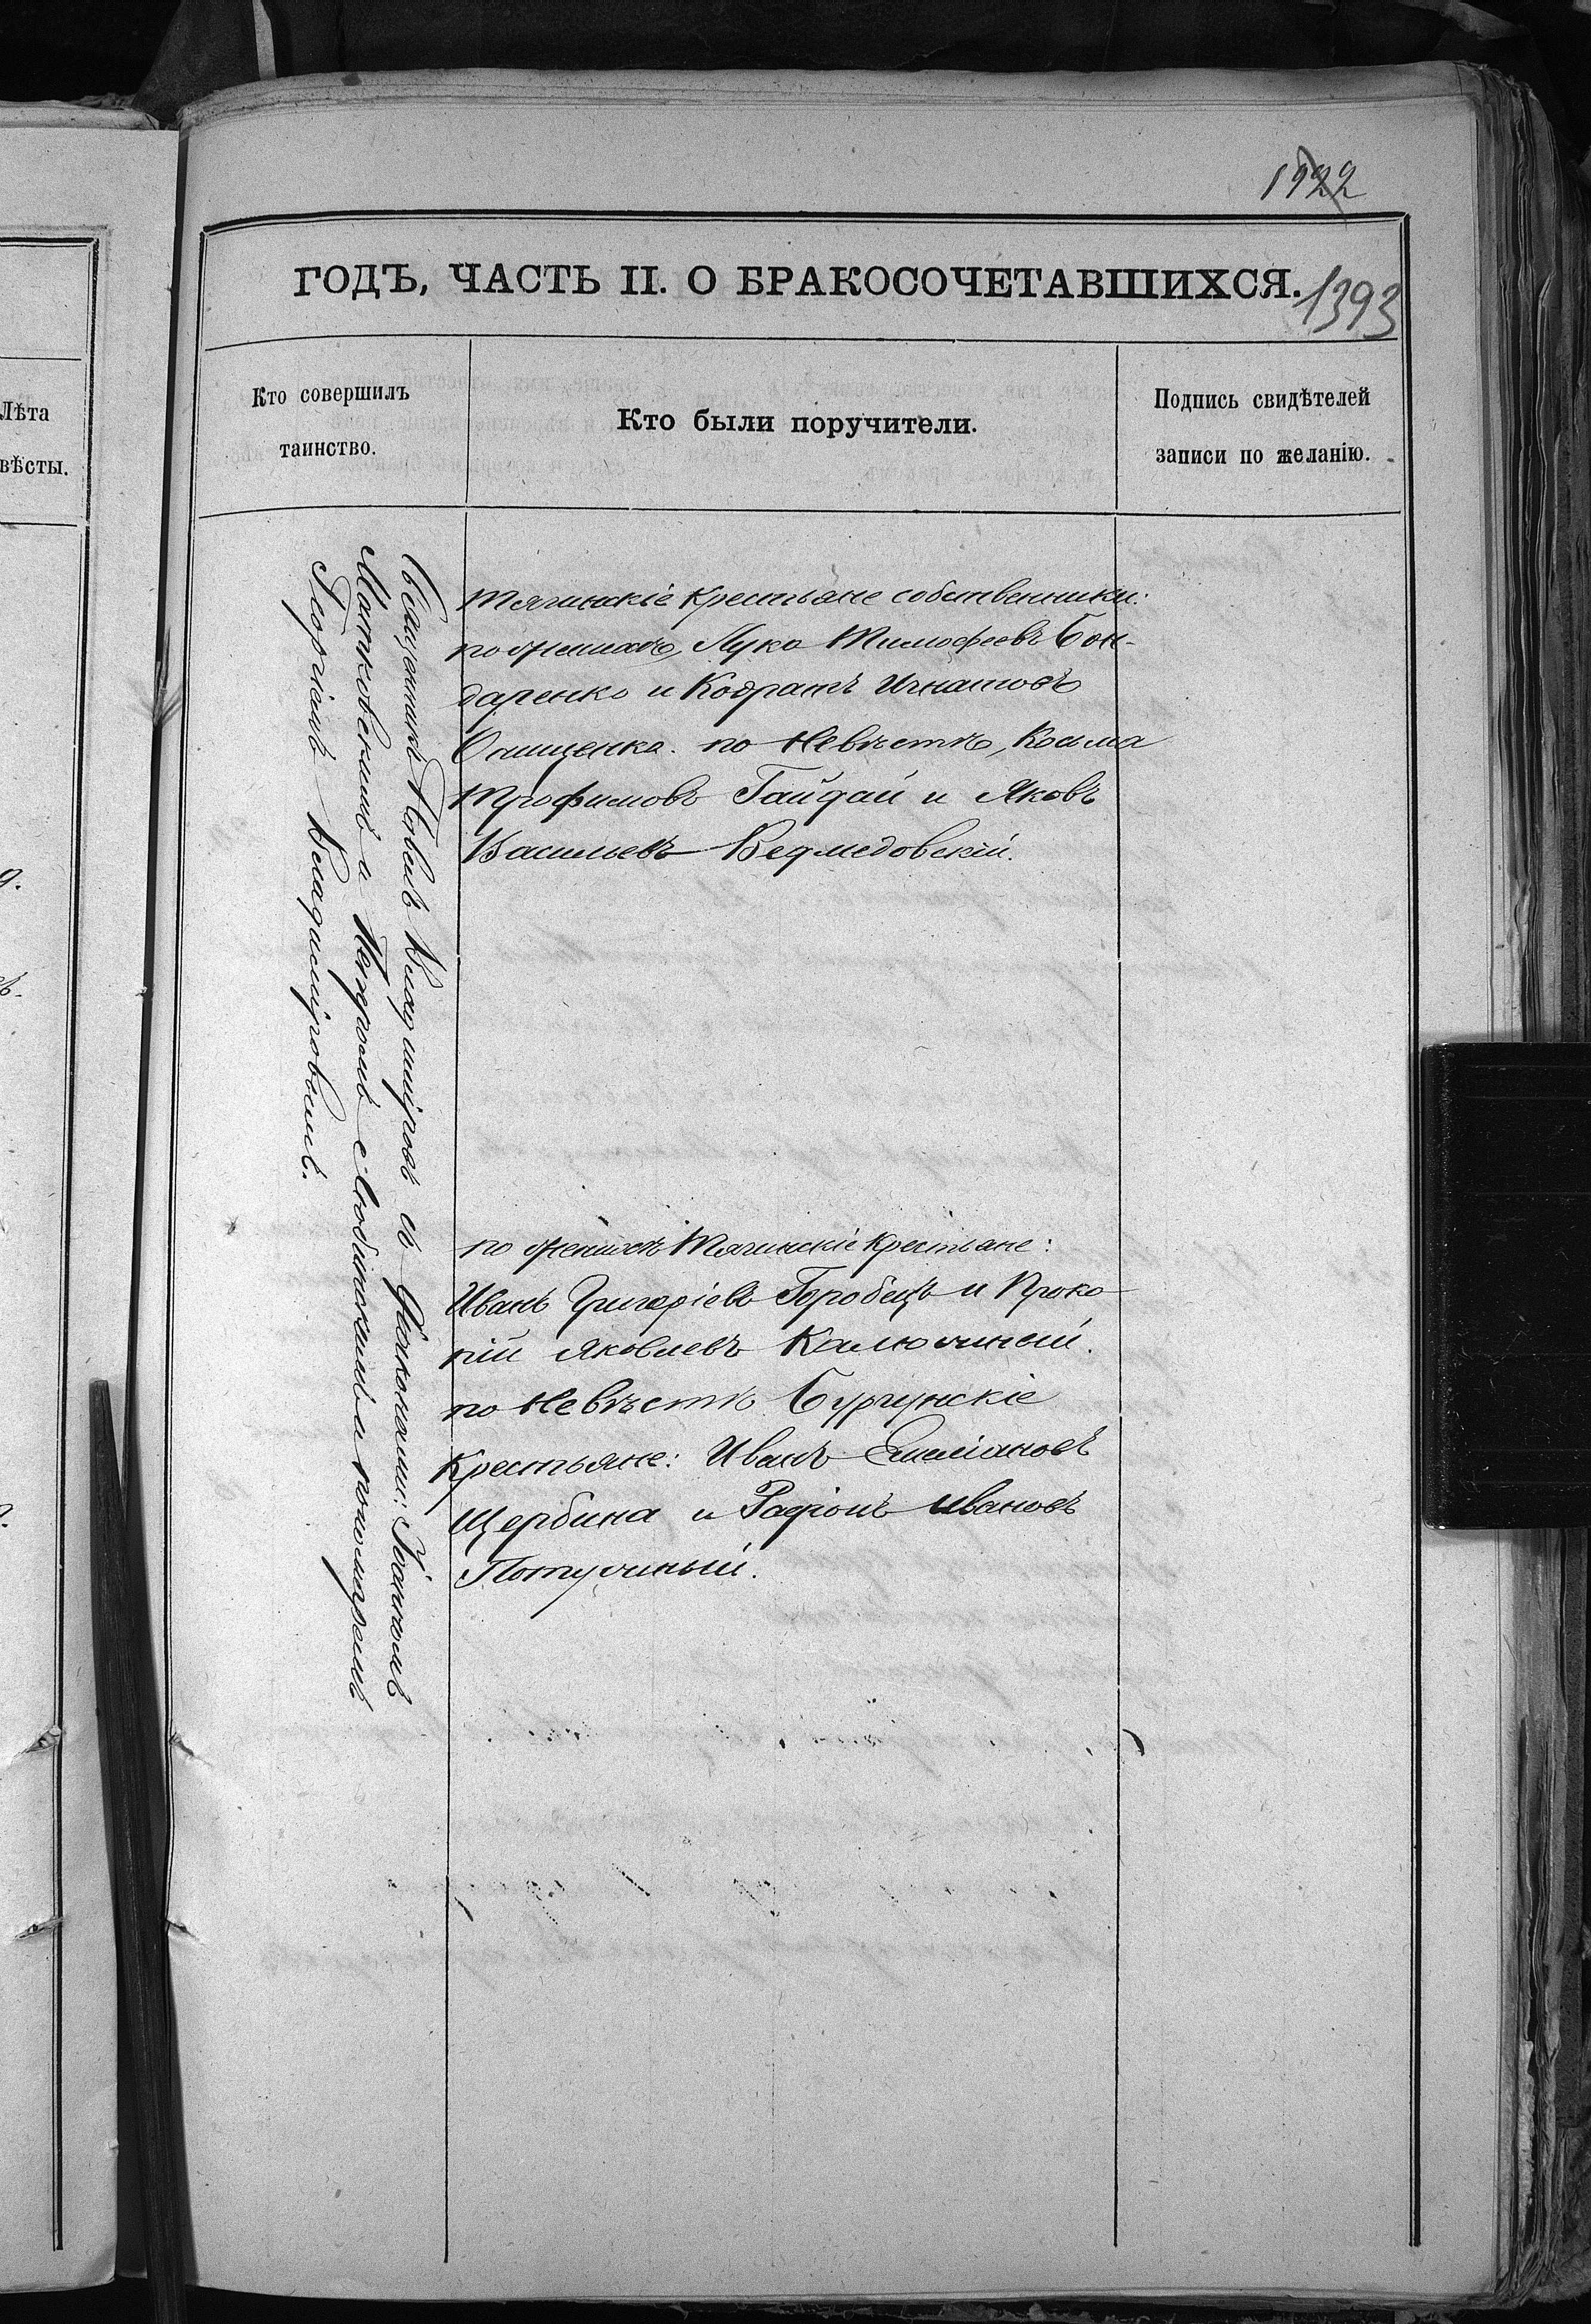 1922
ГОДЪ, ЧАСТЬ II. О БРАКОСОЧЕТАВШИХСЯ.
1393
Лѣта
вѣсты.
Кто совершилъ
таинство.
Кто были поручители.
Подпись свидѣтелей
записи по желанію.
Священникъ Павелъ Владиміровъ съ Діаконами: Іоанномъ
Матковскимъ и Петромъ и пономаремъ
Георгіемъ Владиміровымъ.
Тягинскіе крестьяне собственники:
по женихѣ, Лука Тимофеевъ Бон-
даренко и Кодратъ Игнатовъ
Онищенко. по Невѣстѣ, Косьма
Трофимовъ Гайдай и Яковъ
Васильевъ Ведмедовскій.
по женихѣ Тягинскіе крестьяне:
Иванъ Григоріевъ Горобецъ и Проко-
пій Яковлевъ Калюжный.
по Невѣстѣ Бургунскіе
крестьяне: Иванъ Емеліановъ
Щербина и Радіонъ Ивановъ